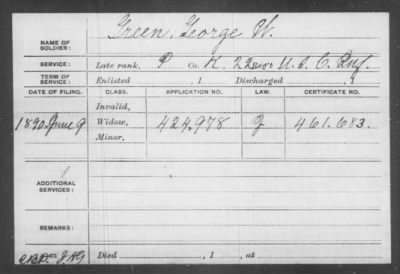 NAME OF SOLDIER: Green, George W.
SERVICE: Late rank, P Co. K, 22 Reg't U.S.C. Inf.
TERM OF SERVICE: Enlisted , 1 Discharged , 1
DATE OF FILING. CLASS. APPLICATION NO. LAW. CERTIFICATE NO.
Invalid,
1890 June 9 Widow, 424,978 J 461.683.
Minor,
ADDITIONAL SERVICES:
REMARKS:
Died , 1 , at